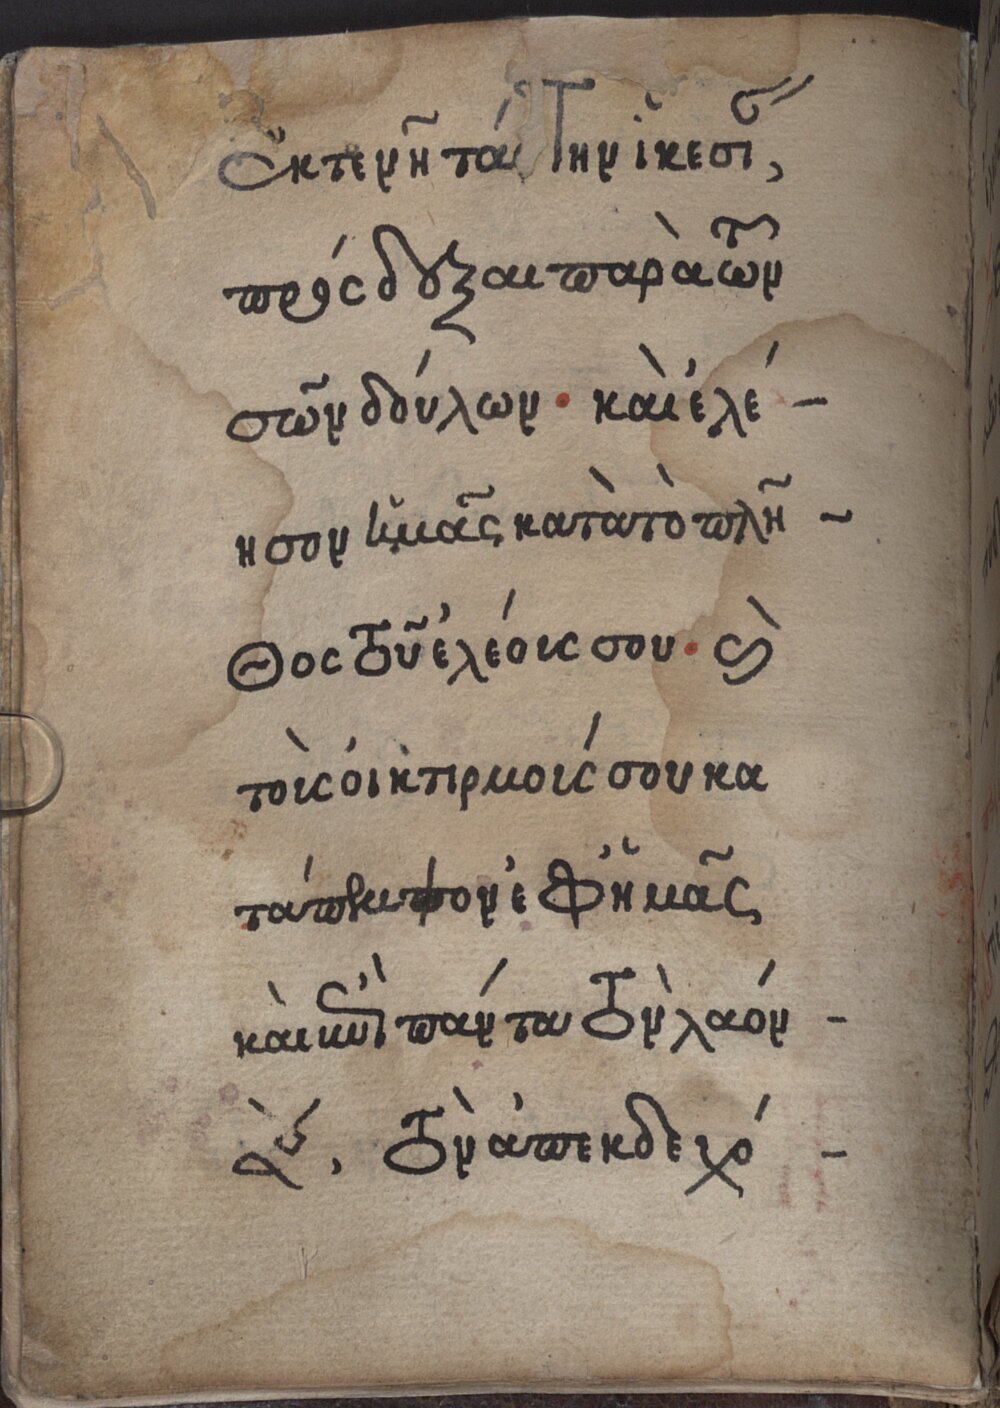 Ἐκτενῆ ταύτην ἱκεσί,
πρόσδεξαι παρὰ τῶν
σῶν δούλων · καὶ ἐλέ -
ησον ἡμᾶς κατὰ τὸ πλῆ -
θος τοῦ ἐλέοις σου · καὶ
τοὶς οἰκτιρμοίς σου κα
τάπεμψον ἐφ ἡμᾶς
καὶ ἐπὶ πάντα τὸν λαόν -
σου, τὸν ἀπεκδεχό -